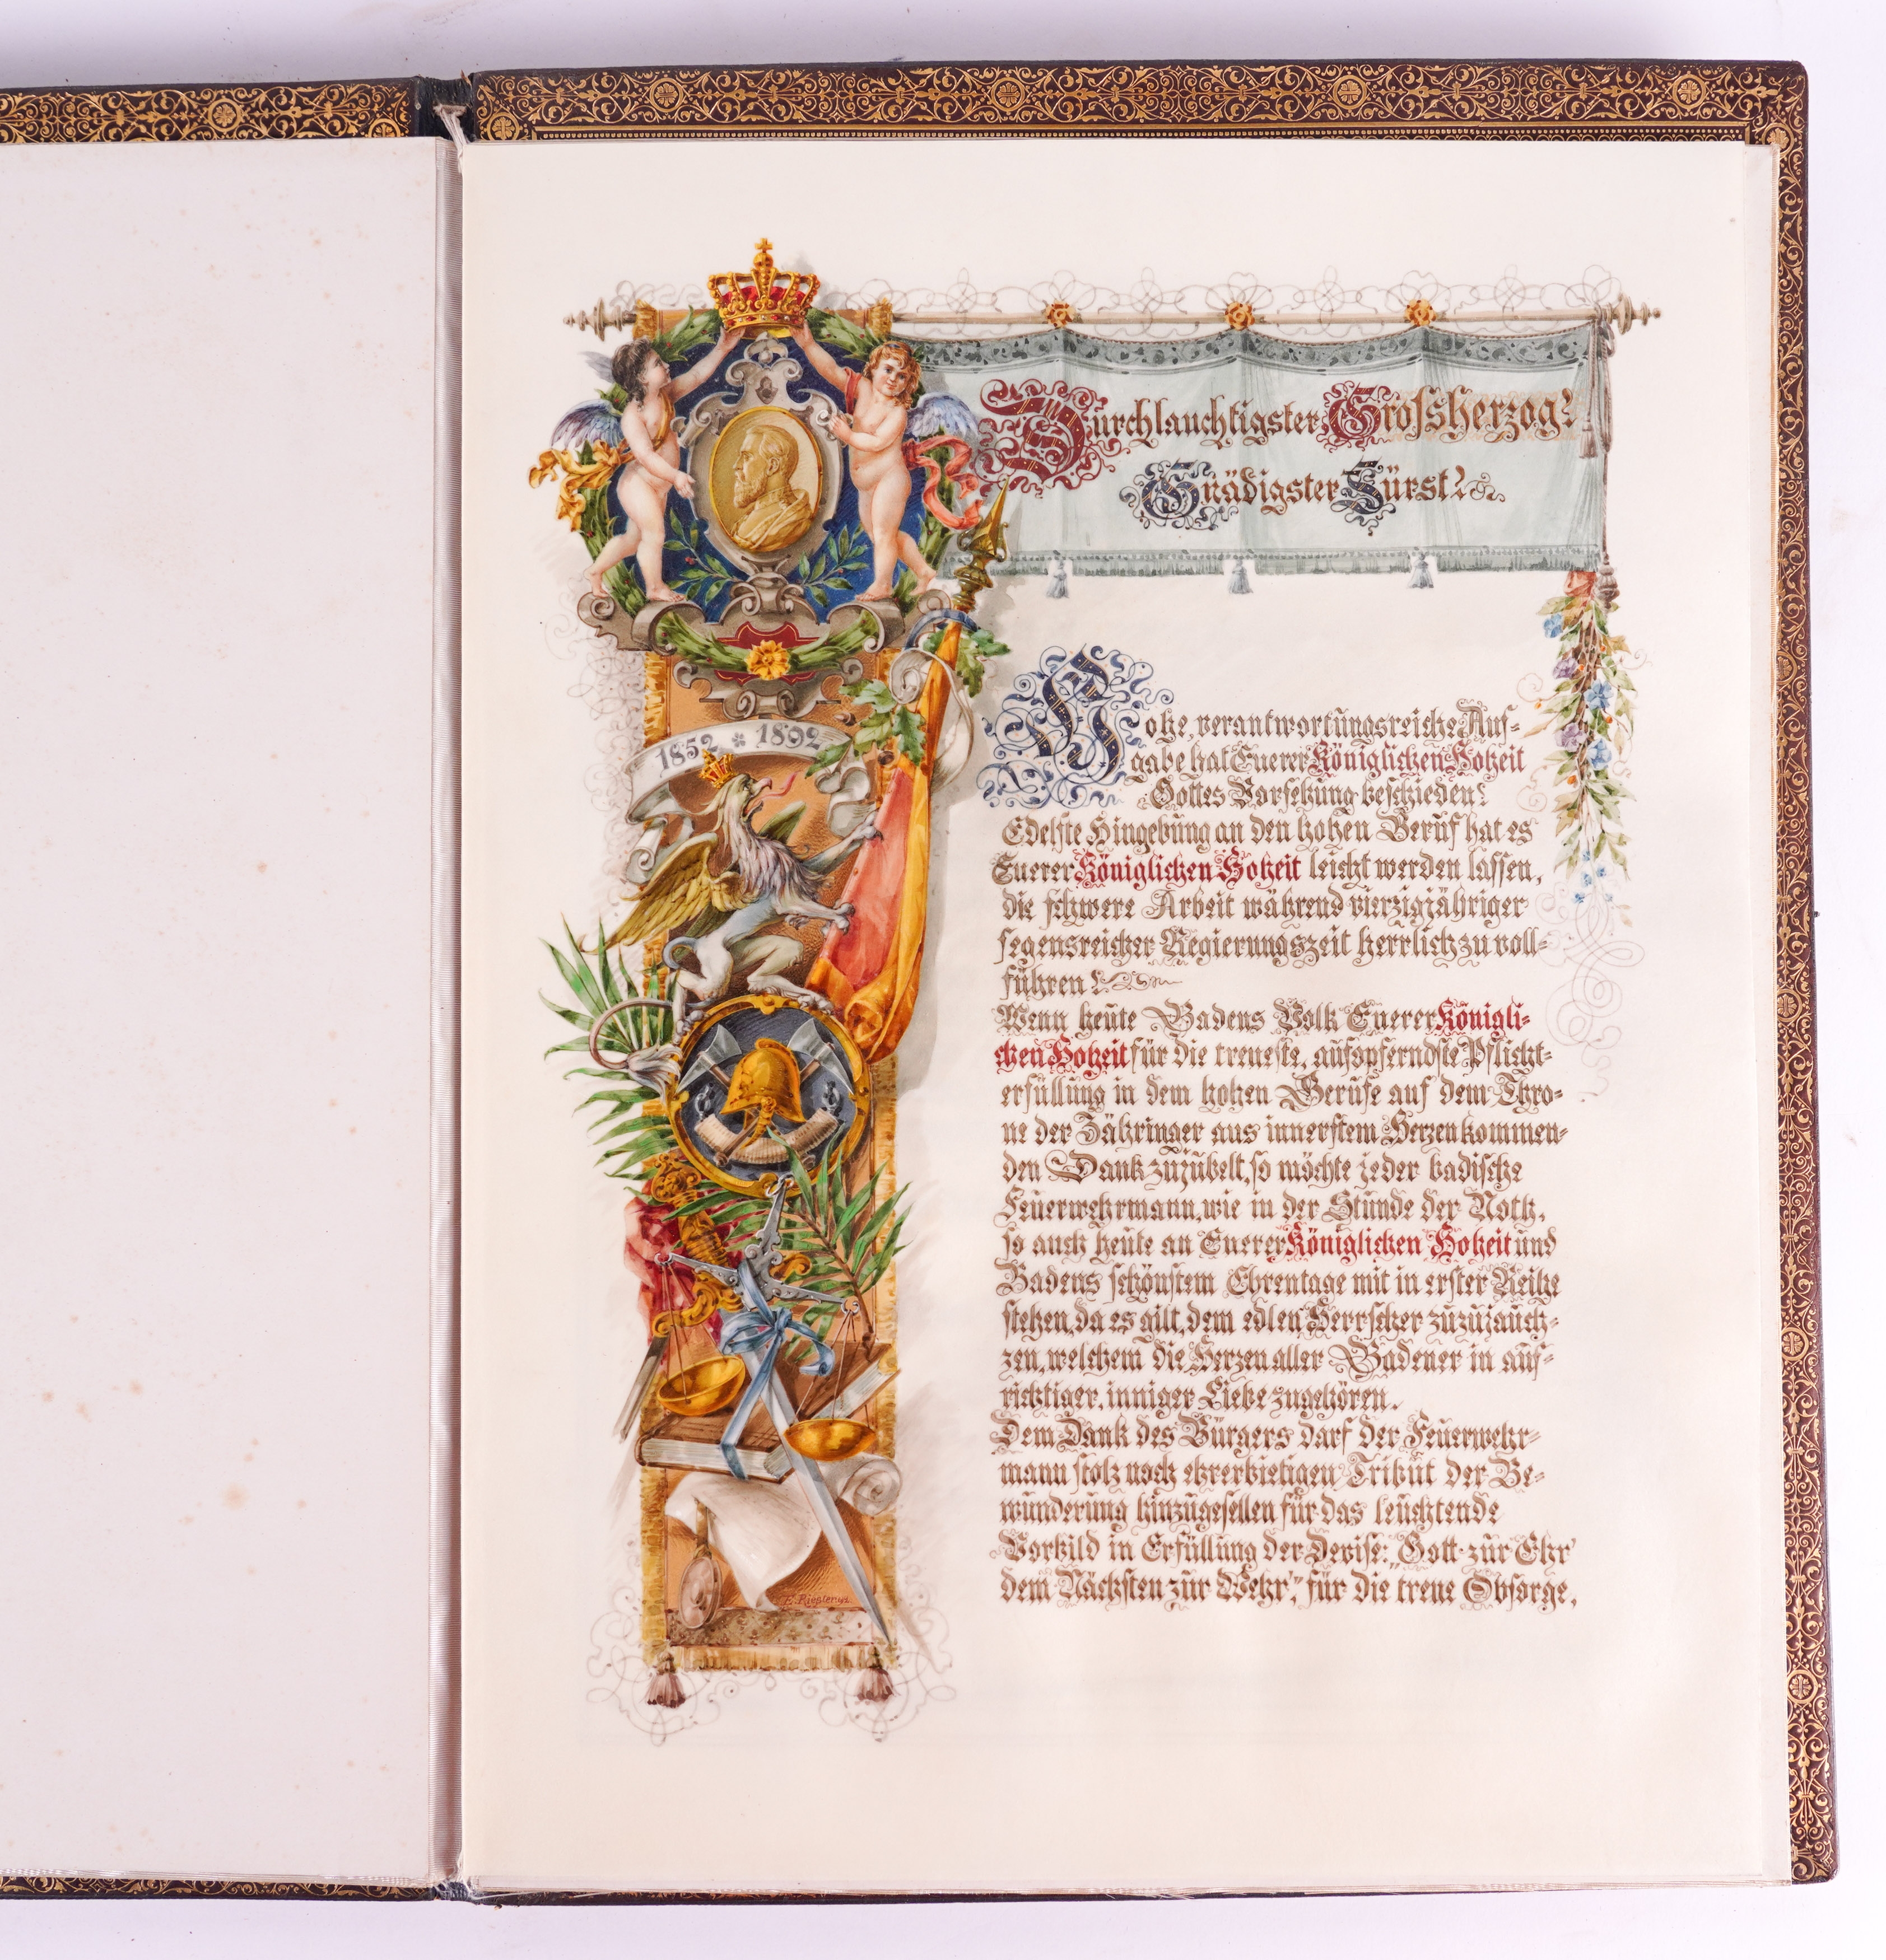 Durchlauchtigster Grossherzog!
Gnädigster Fürst!
1852 * 1892
Hohe, verantwortungsreiche Auf-
gabe hat Euerer Königlichen Hoheit
Gottes Vorsehung beschieden!
Edelste Hingebung an den hohen Beruf hat es
Euerer Königlichen Hoheit leicht werden lassen,
die schwere Arbeit während vierzigjähriger
segensreicher Regierungszeit herrlich zu voll-
führen!
Wenn heute Badens Volk Euerer Königli-
chen Hoheit für die treueste, aufopferndste Pflicht-
erfüllung in dem hohen Berufe auf dem Thro-
ne der Zähringer aus innerstem Herzen kommen-
den Dank zujubelt, so möchte jeder badische
Feuerwehrmann, wie in der Stunde der Noth,
so auch heute an Euerer Königlichen Hoheit und
Badens schönstem Ehrentage mit in erster Reihe
stehen, da es gilt, dem edlen Herrscher zuzujauch-
zen, welchem die Herzen aller Badener in auf-
richtiger, inniger Liebe zugehören.
Dem Dank des Bürgers darf der Feuerwehr-
mann stolz noch ehrerbietigen Tribut der Be-
wunderung hinzugesellen für das leuchtende
Vorbild in Erfüllung der Devise: "Gott zur Ehr'
dem Nächsten zur Wehr", für die treue Obsorge,